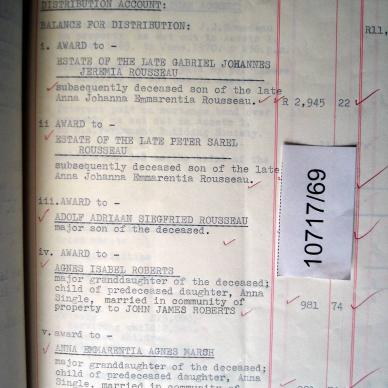 DISTRIBUTION ACCOUNT:
BALANCE FOR DISTRIBUTION:
R11,
i. AWARD to -
ESTATE OF THE LATE GABRIEL JOHANNES
JEREMIA ROUSSEAU
subsequently deceased son of the late
Anna Johanna Emmarentia Rousseau. R 2,945 22
ii AWARD to -
ESTATE OF THE LATE PETER SAREL
ROUSSEAU
subsequently deceased son of the late
Anna Johanna Emmarentia Rousseau.
10717/69
iii. AWARD to -
ADOLF ADRIAAN SIEGFRIED ROUSSEAU
major son of the deceased.
iv. AWARD to -
AGNES ISABEL ROBERTS
major granddaughter of the deceased;
child of predeceased daughter, Anna
Single, married in community of
property to JOHN JAMES ROBERTS 981 74
v. award to -
ANNA EMMARENTIA AGNES MARSH
major granddaughter of the deceased;
child of predeceased daughter, Anna
Single, married in community of